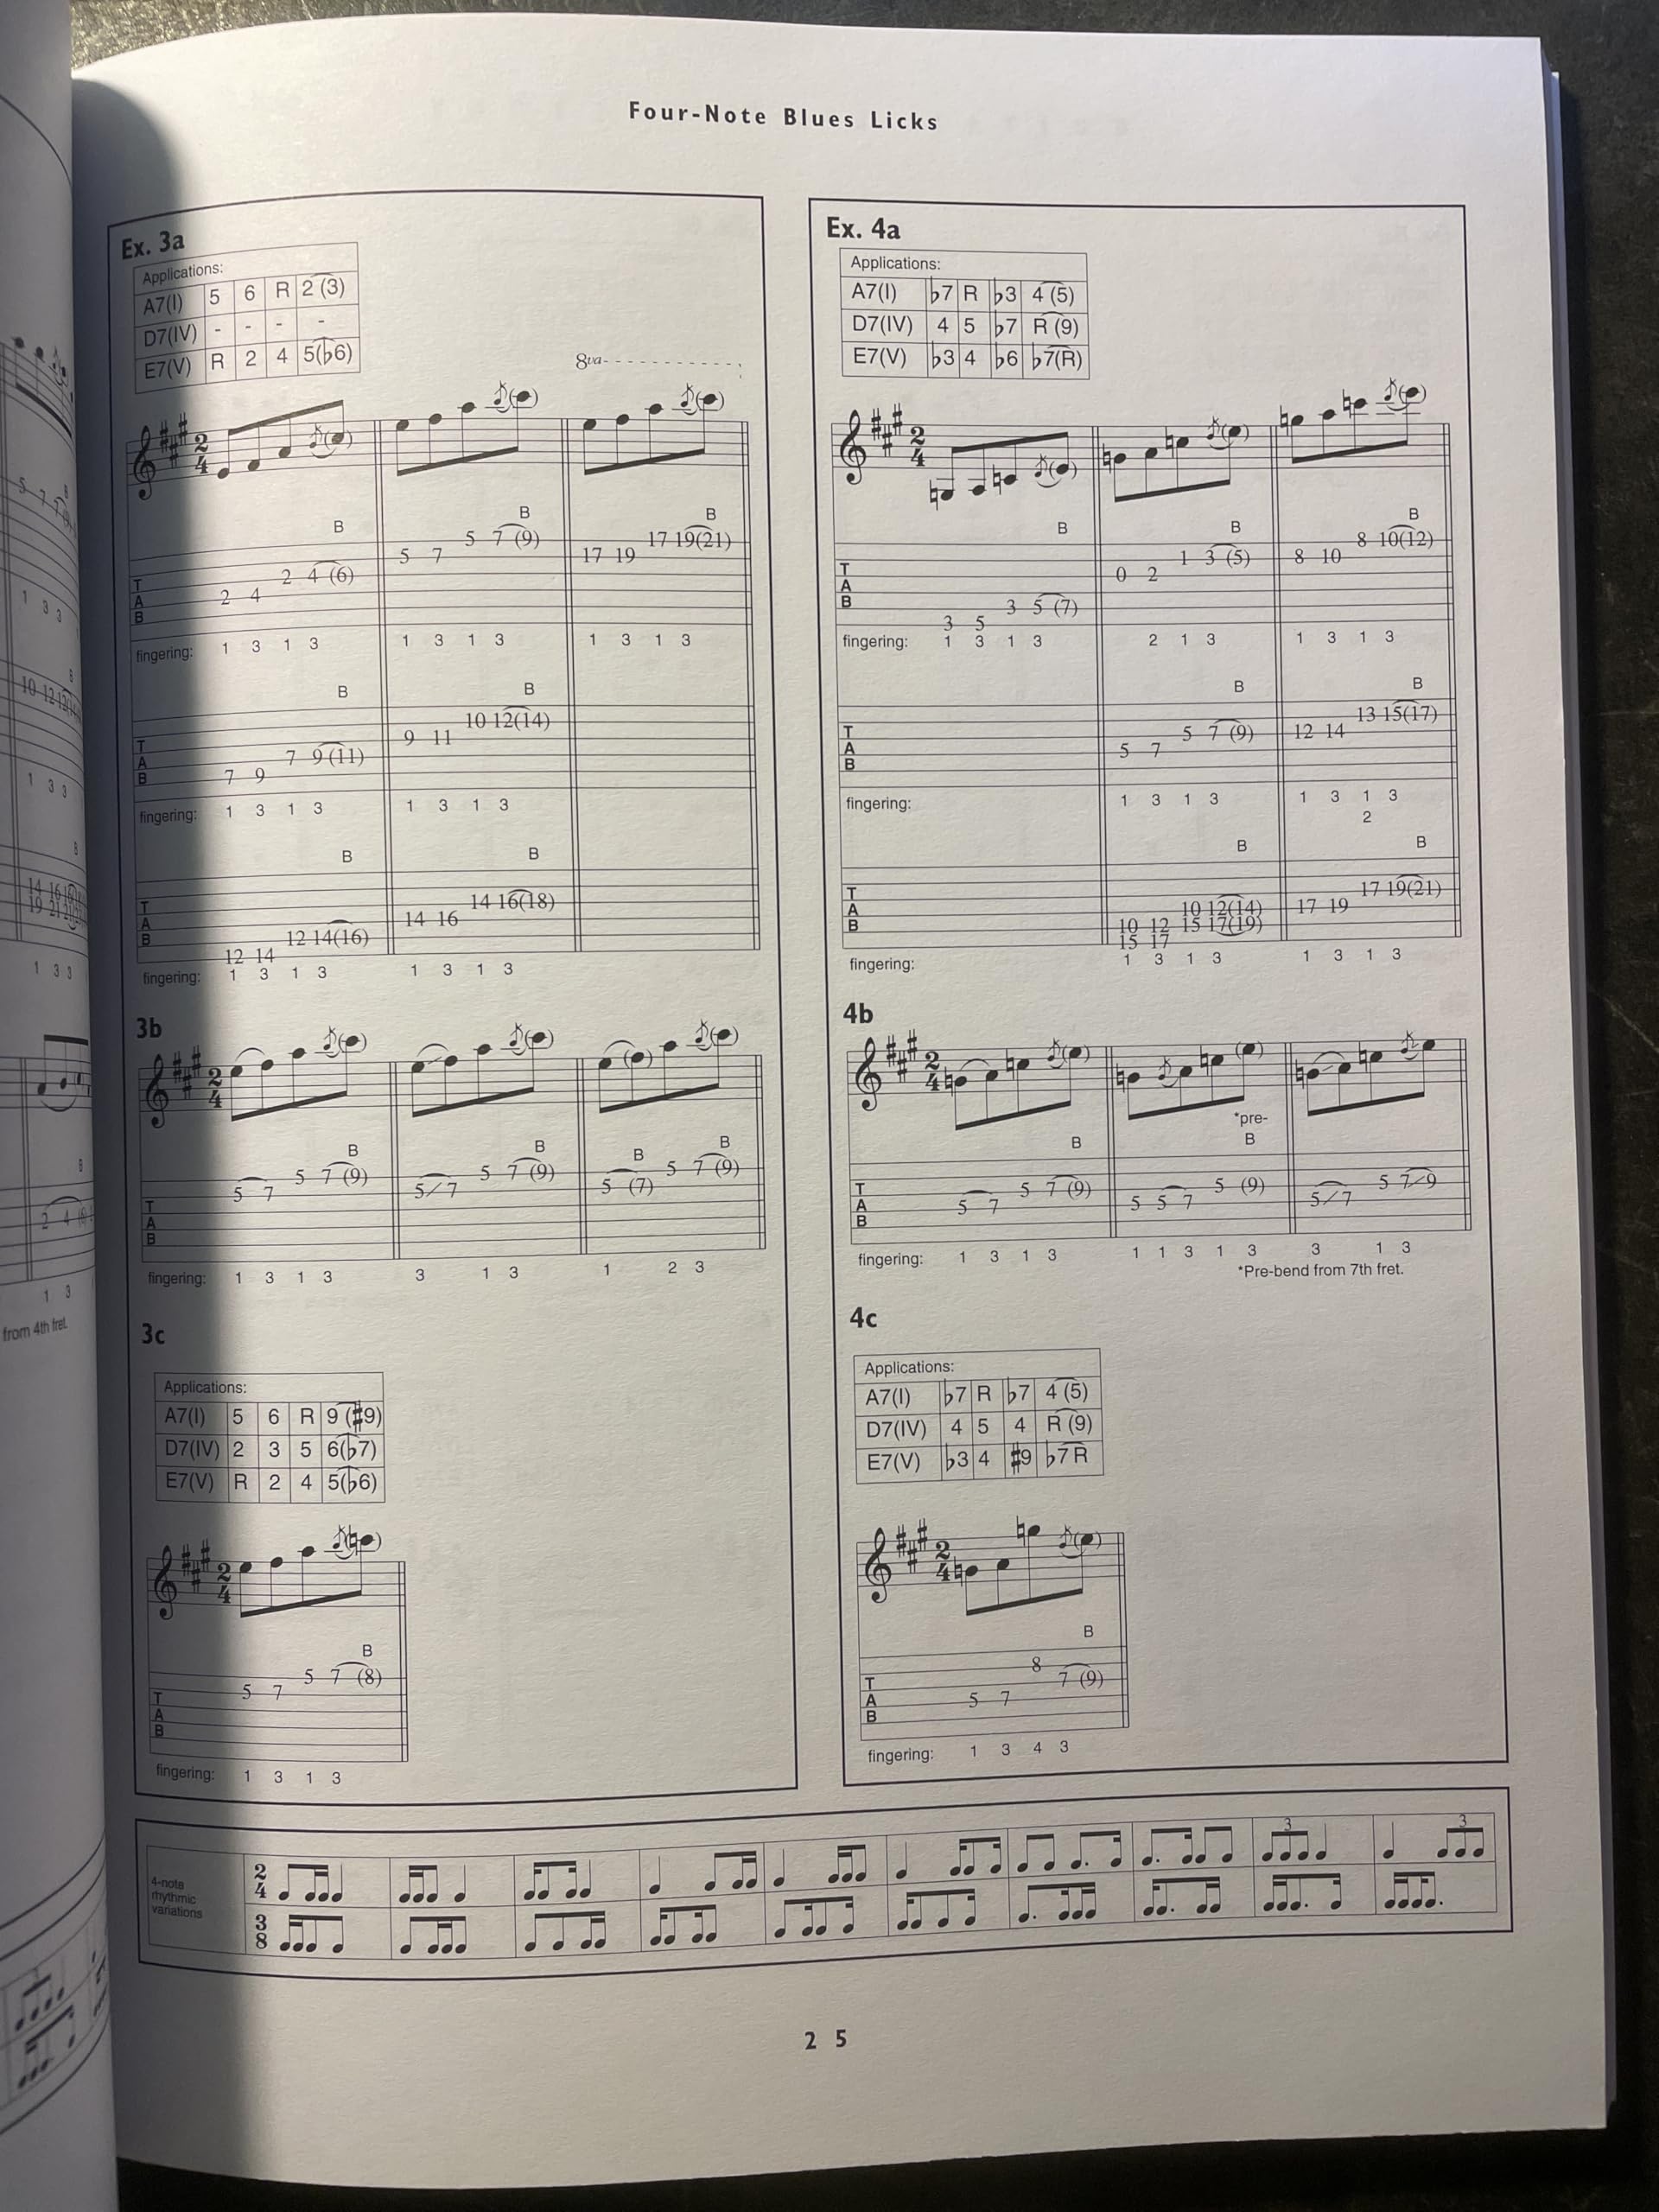 Four-Note Blues Licks
Ex. 3a
Applications:
A7(I) 5 6 R 2 (3)
D7(IV) - - - -
E7(V) R 2 4 5(♭6)
8va
2 4
B B B
T A B 2 4 2 4 (6) 5 7 5 7 (9) 17 19 17 19(21)
fingering: 1 3 1 3 1 3 1 3 1 3 1 3
B B
T A B 7 9 7 9 (11) 9 11 10 12(14)
fingering: 1 3 1 3 1 3 1 3
B B
T A B 12 14 12 14(16) 14 16 14 16(18)
fingering: 1 3 1 3 1 3 1 3
3b
2 4
B B B B
T A B 5 7 5 7 (9) 5 7 5 7 (9) 5 (7) 5 7 (9)
fingering: 1 3 1 3 3 1 3 1 2 3
3c
Applications:
A7(I) 5 6 R 9 (♯9)
D7(IV) 2 3 5 6(♭7)
E7(V) R 2 4 5(♭6)
2 4
B
T A B 5 7 5 7 (8)
fingering: 1 3 1 3
Ex. 4a
Applications:
A7(I) ♭7 R ♭3 4 (5)
D7(IV) 4 5 ♭7 R (9)
E7(V) ♭3 4 ♭6 ♭7(R)
2 4
B B B
T A B 3 5 3 5 (7) 0 2 1 3 (5) 8 10 8 10(12)
fingering: 1 3 1 3 2 1 3 1 3 1 3
B B
T A B 5 7 5 7 (9) 12 14 13 15(17)
fingering: 1 3 1 3 1 3 1 3
2
B B
T A B 10 12 10 12(14) 17 19 17 19(21)
15 17 15 17(19)
fingering: 1 3 1 3 1 3 1 3
4b
2 4
*pre-
B B
T A B 5 7 5 7 (9) 5 5 7 5 (9) 5 7 5 7 9
fingering: 1 3 1 3 1 1 3 1 3 3 1 3
*Pre-bend from 7th fret.
4c
Applications:
A7(I) ♭7 R ♭7 4 (5)
D7(IV) 4 5 4 R (9)
E7(V) ♭3 4 ♯9 ♭7 R
2 4
B
T A B 5 7 8 7 (9)
fingering: 1 3 4 3
4-note
rhythmic
variations
2 4
3 3
3 8
2 5
from 4th fret.